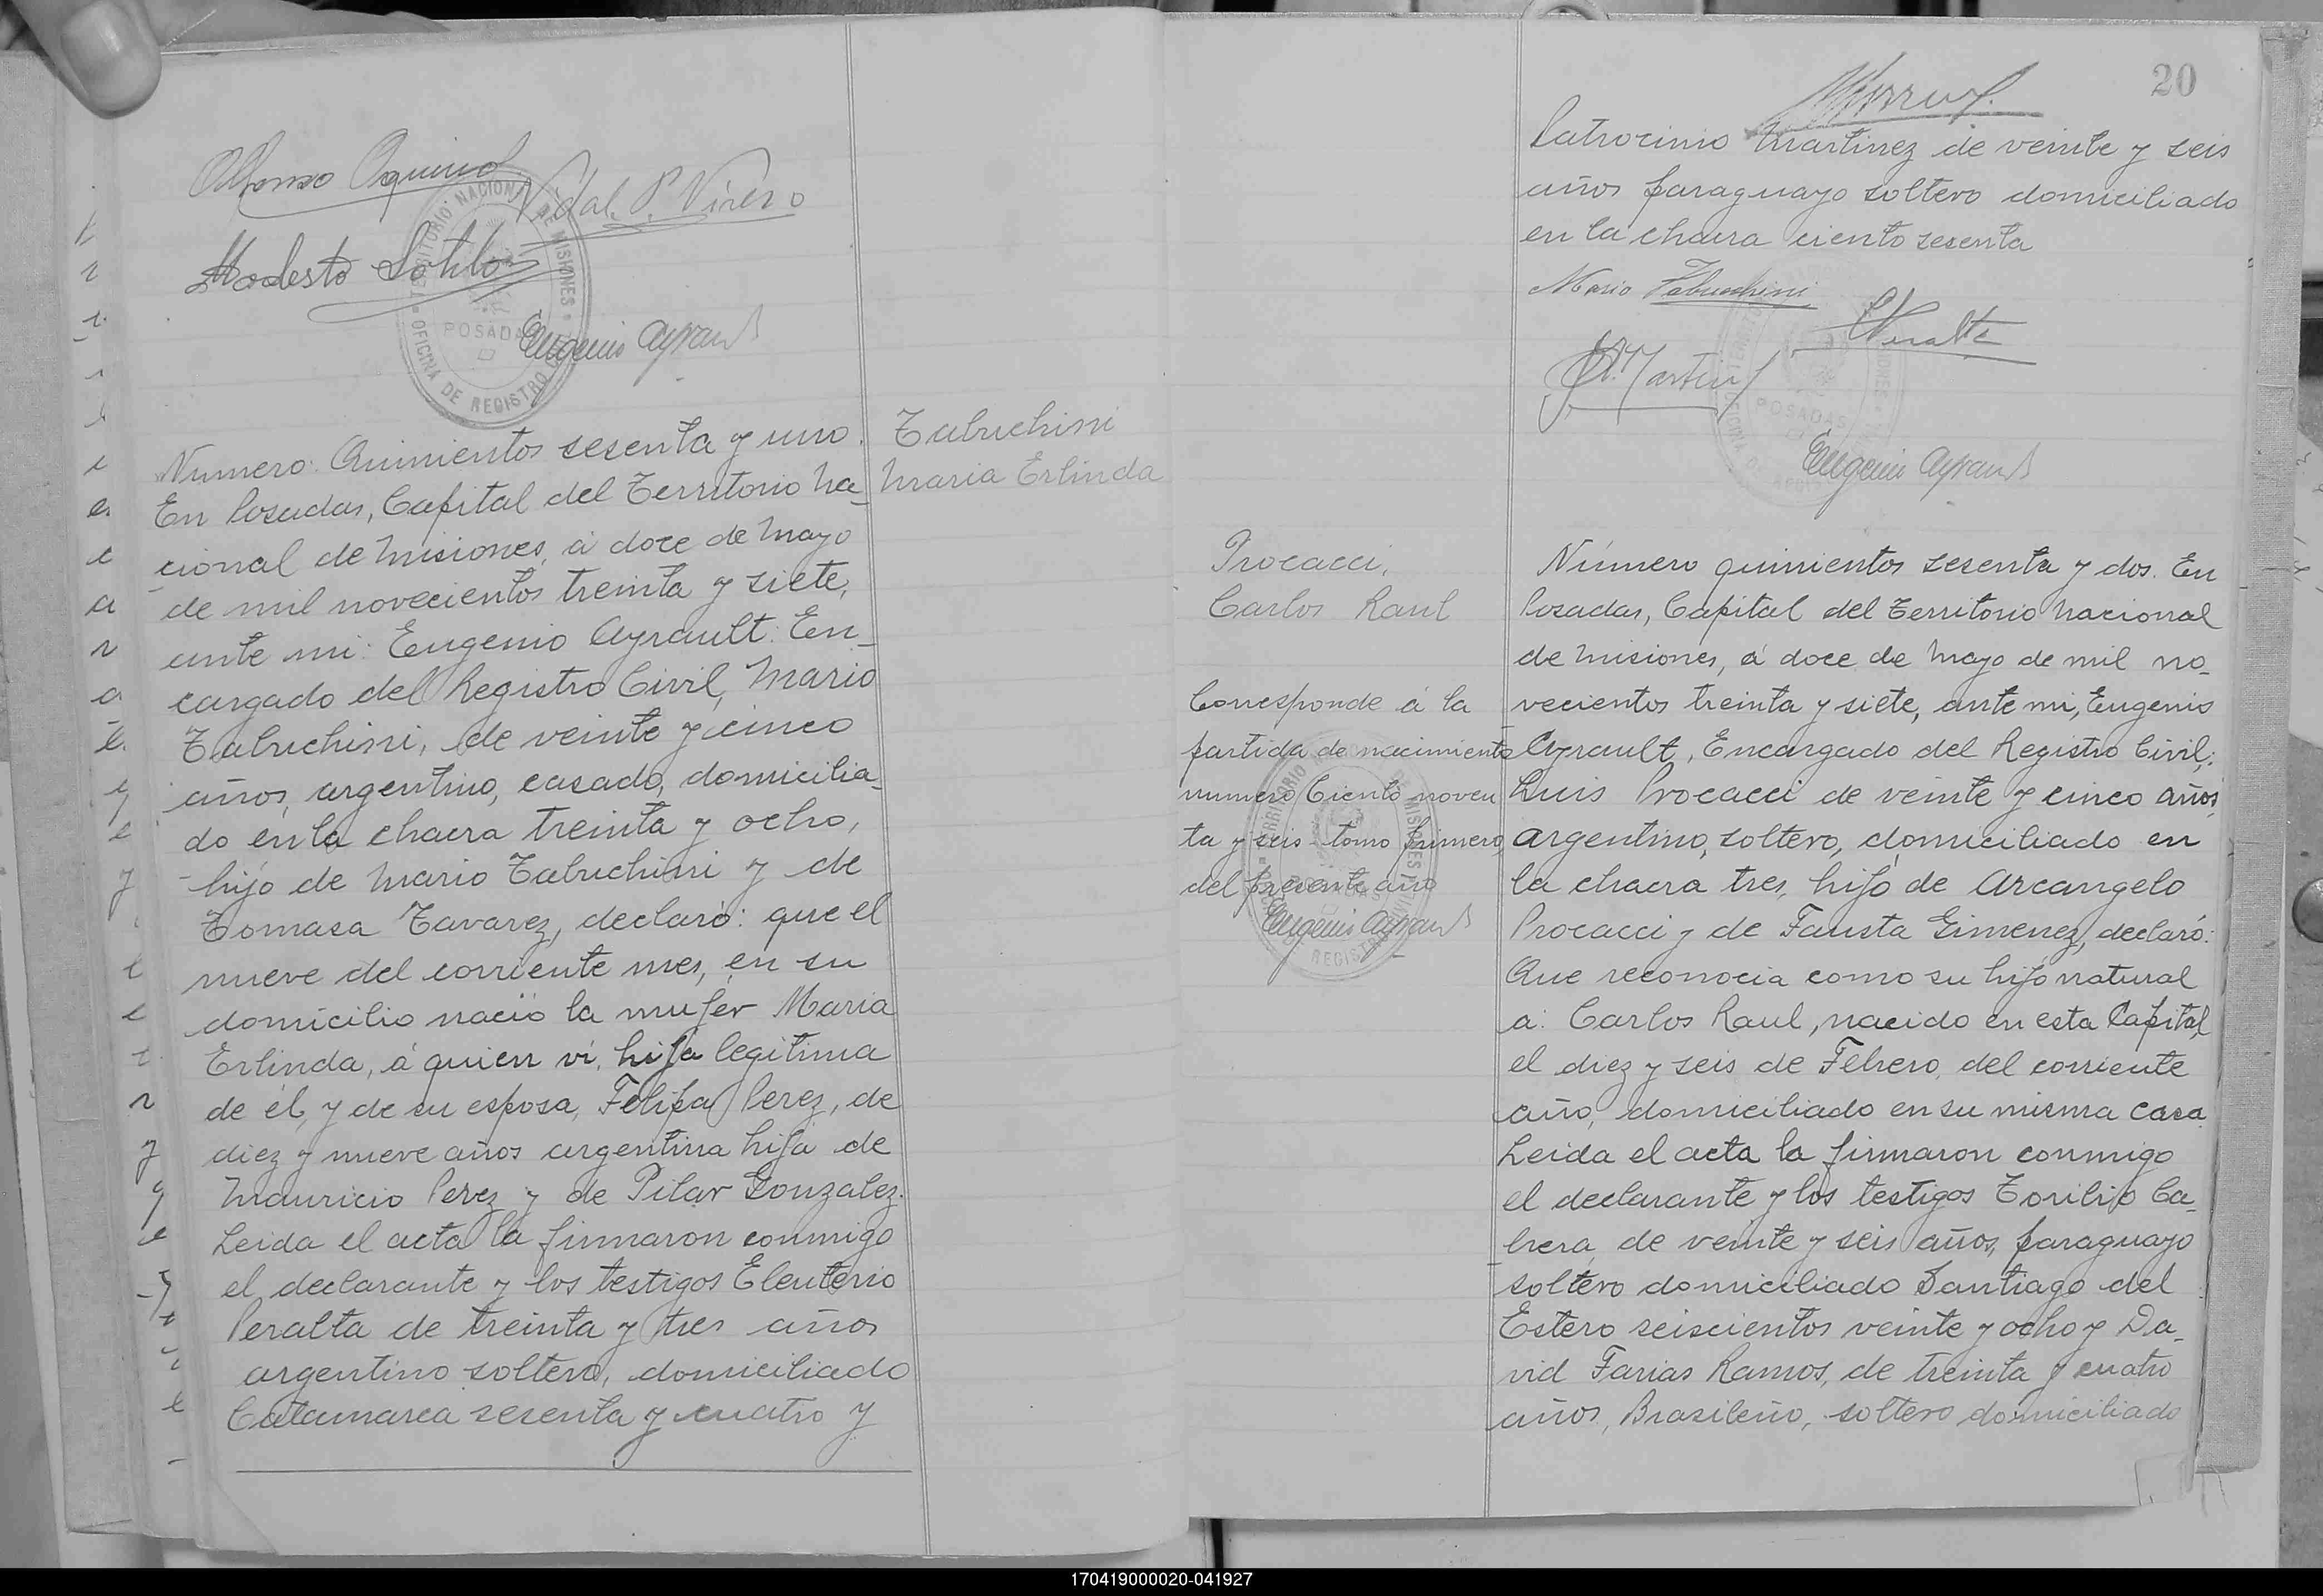 Alfonso Aquino
Vidal P. Vivero
Modesto Sotelo
Eugenio Ayrault
TERRITORIO NACIONAL DE MISIONES
POSADAS
OFICINA DE REGISTRO CIVIL
Numero: Quinientos sesenta y uno.
En Posadas, Capital del Territorio Na-
cional de Misiones, á doce de Mayo
de mil novecientos treinta y siete,
ante mi: Eugenio Ayrault: En-
cargado del Registro Civil, Mario
Tabuchini, de veinte y cinco
años, argentino, casado, domicilia-
do en la chacra treinta y ocho,
hijo de Mario Tabuchini y de
Tomasa Tavarez, declaró: que el
nueve del corriente mes, en su
domicilio nació la mujer Maria
Erlinda, á quien ví, hija legitima
de él, y de su esposa, Felipa Perez, de
diez y nueve años argentina hija de
Mauricio Perez y de Pilar Gonzalez.
Leida el acta la firmaron conmigo
el declarante y los testigos Eleuterio
Peralta de treinta y tres años
argentino soltero, domiciliado
Catamarca sesenta y cuatro y
Tabuchini
Maria Erlinda
20
Patrocinio Martinez de veinte y seis
años paraguayo soltero domiciliado
en la chacra ciento sesenta
Mario Tabuchini
EPeralta
P. Martinez
POSADAS
Eugenio Ayrault
Procacci,
Carlos Raul
Corresponde á la
partida de nacimiento
numero Ciento noven
ta y seis tomo primero,
del presente año
Eugenio Ayrault
Número quinientos sesenta y dos. En
Posadas, Capital del Territorio Nacional
de Misiones, á doce de Mayo de mil no-
vecientos treinta y siete, ante mi, Eugenio
Ayrault, Encargado del Registro Civil;
Luis Procacci de veinte y cinco años,
argentino, soltero, domiciliado en
la chacra tres, hijo de Arcangelo
Procacci y de Fausta Gimenez, declaró:
Que reconocia como su hijo natural
a: Carlos Raul, nacido en esta Capital,
el diez y seis de Febrero, del corriente
año, domiciliado en su misma casa.
Leida el acta la firmaron conmigo
el declarante y los testigos Torilio Ca-
brera, de veinte y seis años, paraguayo
soltero domiciliado Santiago del
Estero seiscientos veinte y ocho y Da-
vid Farias Ramos, de treinta y cuatro
años, Brasileño, soltero domiciliado
170419000020-041927